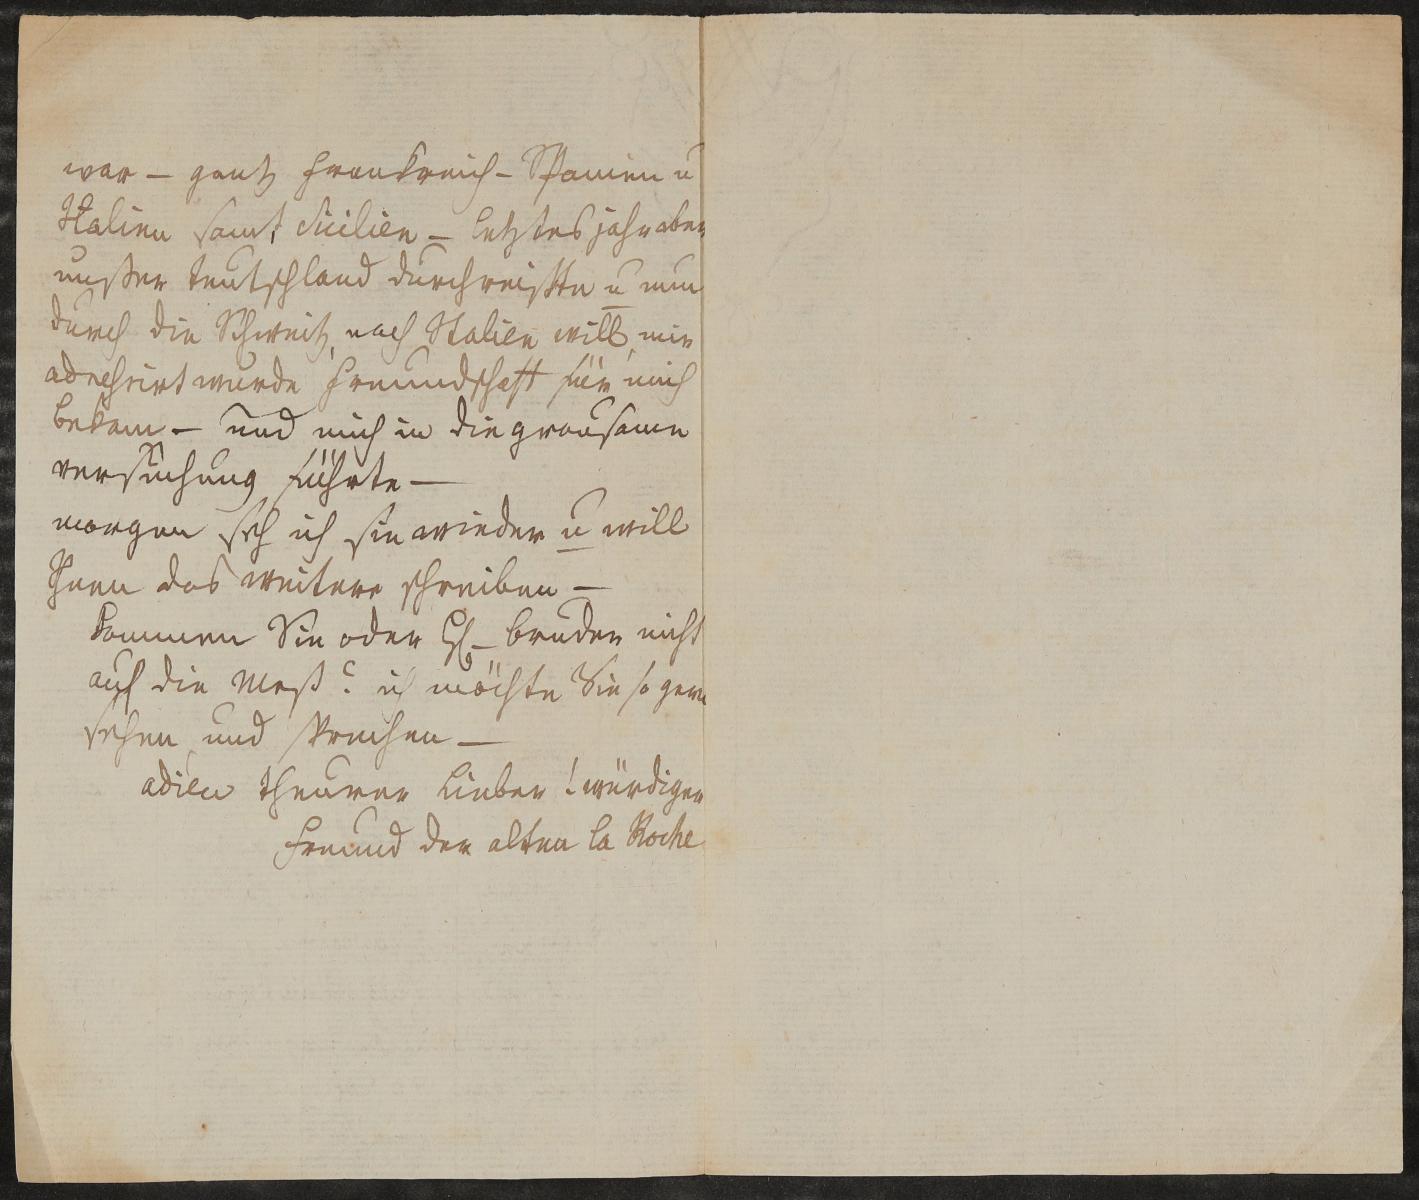 war – gantz Frankreich – Spanien u
Italien samt Sicilien – letztes jahr aber
unßer teutschland durchreißte u nun
durch die Schweitz nach Italien will, mir
adressirt wurde Freundschaft für mich
bekam – und mich in die graußame
versuchung führte –
morgen seh ich sie wieder u will
Ihnen das weitere schreiben –
kommen Sie oder H – bruder nicht
auf die Meß? ich möchte Sie so gern
sehen und sprechen –
adieu theurer Lieber! würdiger
Freund der alten la Roche